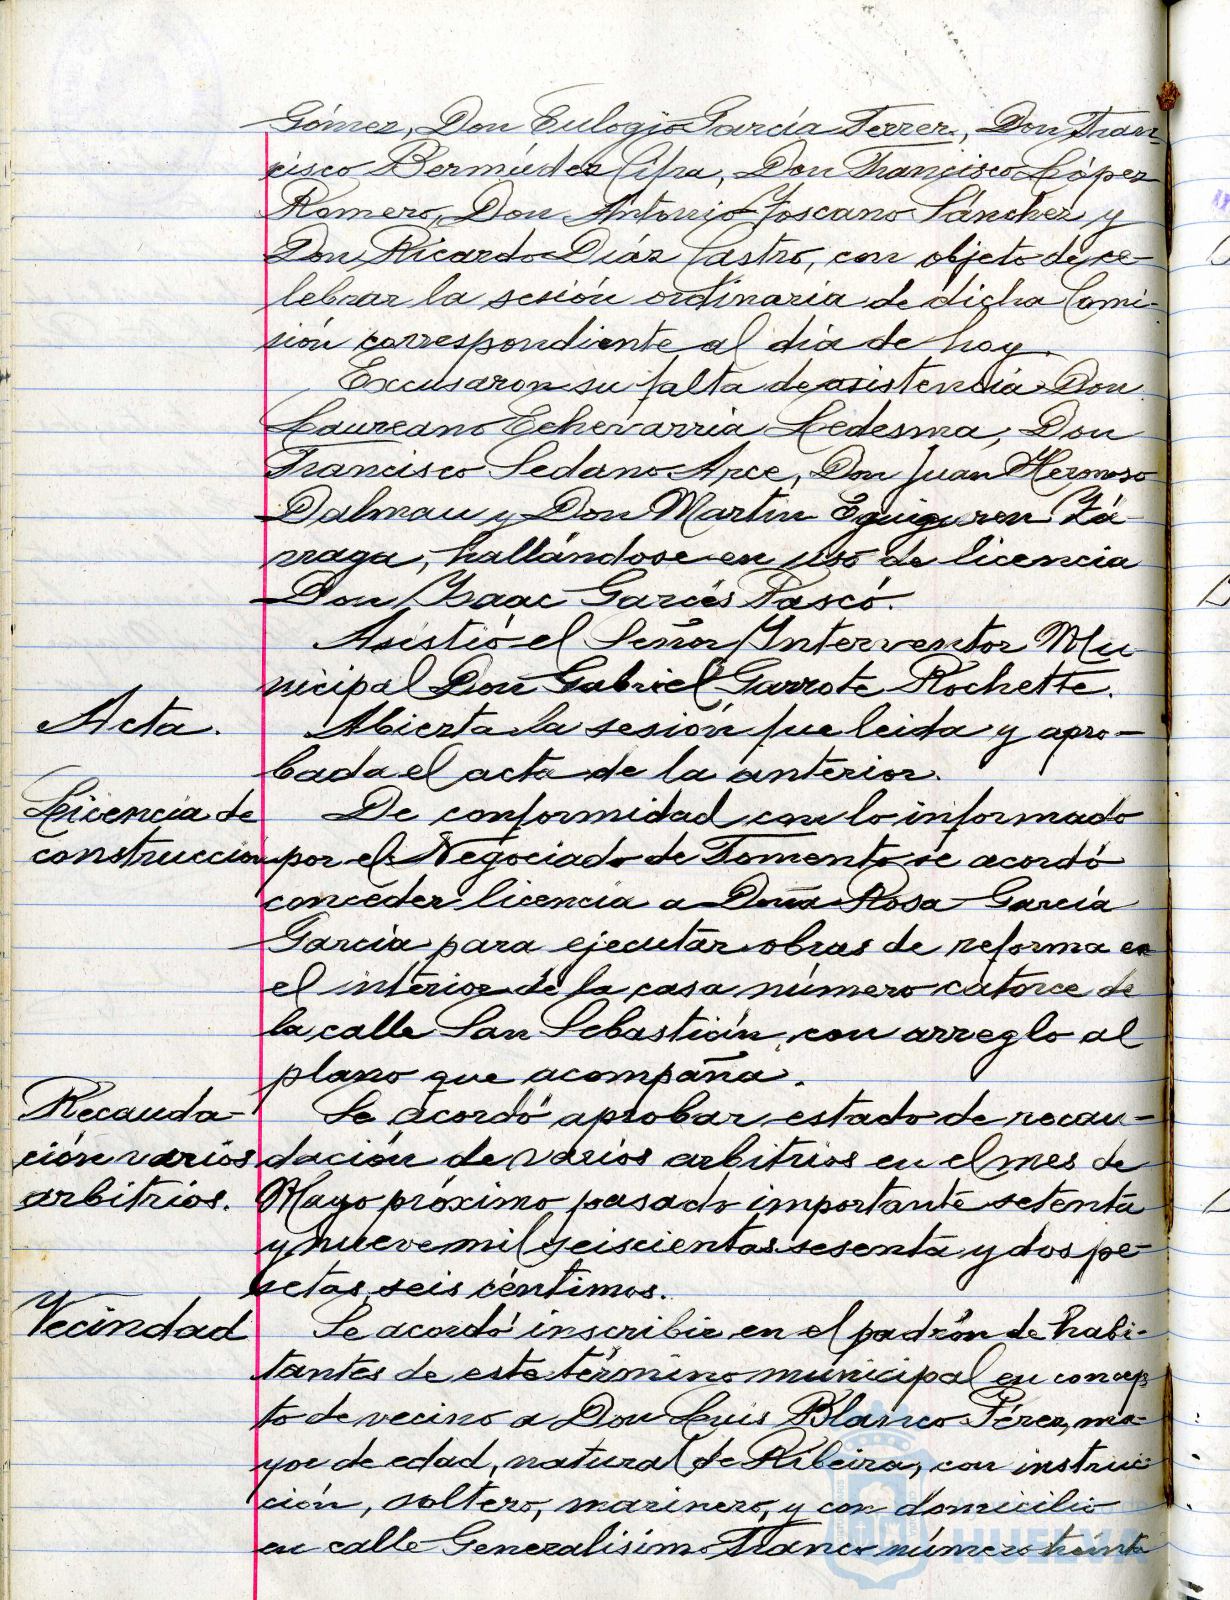 Gómez, Don Eulogio García Ferrer, Don Fran-
cisco Bermúdez Cifra, Don Francisco López
Romero, Don Antonio Toscano Sánchez y
Don Ricardo Díaz Castro, con objeto de ce-
lebrar la sesión ordinaria de dicha Comi-
sión correspondiente al día de hoy.
Excusaron su falta de asistencia Don
Laureano Echevarria Ledesma, Don
Francisco Sedano Arce, Don Juan Hermoso
Dalmau y Don Martín Eguiguren Zá-
rraga, hallándose en uso de licencia
Don Isaac Garcés Pascó.
Asistió el Señor Interventor Mu-
nicipal Don Gabriel Garrote Rochette.
Acta.
Abierta la sesión fue leida y apro-
bada el acta de la anterior.
Licencia de
construccion
De conformidad con lo informado
por el Negociado de Fomento se acordó
conceder licencia a Doña Rosa García
García para ejecutar obras de reforma en
el interior de la casa número catorce de
la calle San Sebastián, con arreglo al
plano que acompaña.
Recauda-
ción varios
arbitrios.
Se acordó aprobar estado de recau-
dación de varios arbitrios en el mes de
Mayo próximo pasado importante setenta
y nueve mil seiscientas sesenta y dos pe-
setas, seis céntimos.
Vecindad
Se acordó inscribir en el padrón de habi-
tantes de este término municipal en concep-
to de vecino a Don Luis Blanco Pérez, ma-
yor de edad, natural de Ribeira, con instruc-
ción, soltero, marinero, y con domicilio
en calle Generalísimo Franco número treinta
HUELVA